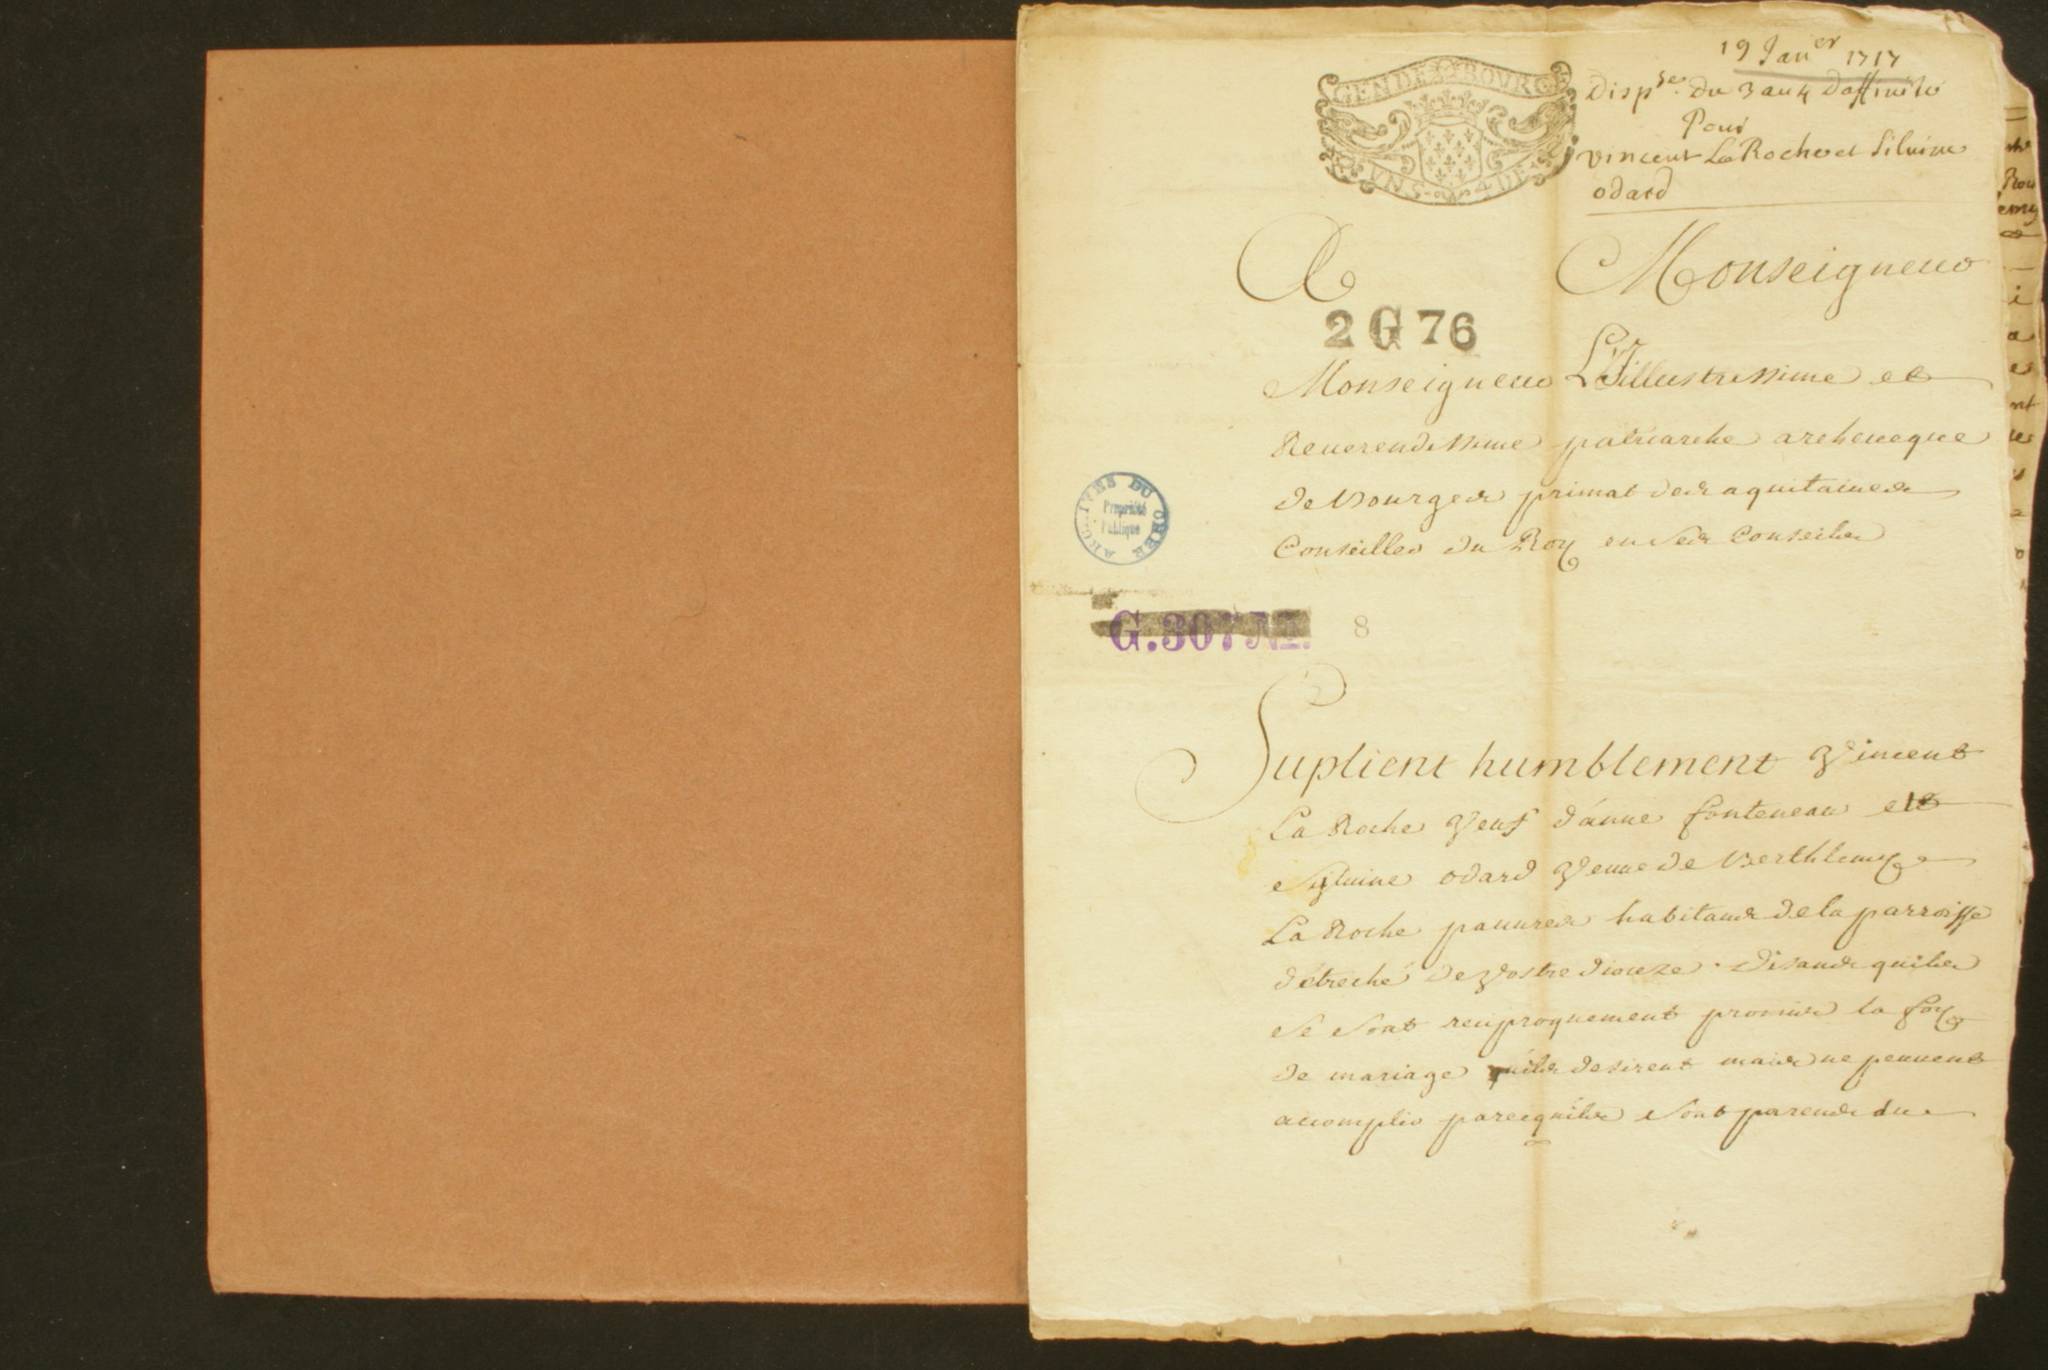 19 Janer 1717
Dispse. du 3 au 4 Daffinité
Pour
vincent La Roche et Silvine
odard
GEN DE BOVRGE
4 DE
A Monseigneur
2 G 76
Monseigneur L'Illustrissime et
Reuerendissime patriarche archeueque
de Bourges primat des aquitaines
Conseiller du Roy en ses conseils
ARCHIVES DU CHER
Propriété
Publique
G. 307 N
8
Suplient humblement Vincent
La Roche Veuf d'anne fonteneau et
Syluine odard Veuue de Berthlemy
La Roche pauures habitans de la parroisse
d'étreché de Vostre dioceze . disans quils
se sont reciproquement promis la foy
de mariage quils desirent mais ne peuuent
accomplir parcequils sont parens du